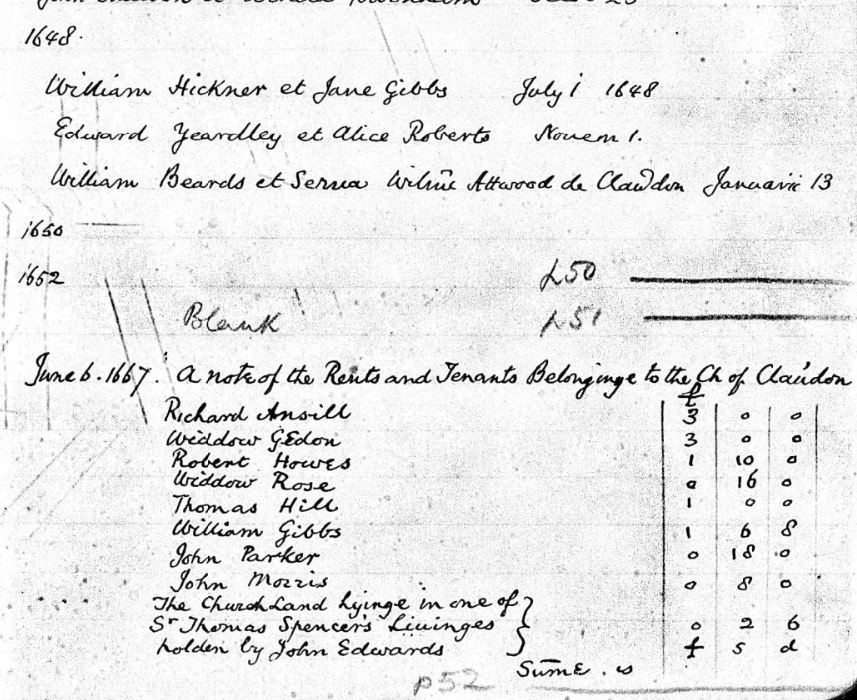 1648.
William Hickner et Jane Gibbs July 1 1648
Edward Yeardley et Alice Roberts Nouem 1.
William Beards et Attwood de Clawdon Januarii 13
1650
1652 £50
Blank £51
June 6. 1667. A note of the Rents and Tenants Belonginge to the Ch of Claudon
£
Richard Ansill 3 0 0
Widdow GEdon 3 0 0
Robert Howes 1 10 0
Widdow Rose 0 16 0
Thomas Hill 1 0 0
William Gibbs 1 6 8
John Parker 0 18 0
John Morris 0 8 0
The Church Land lyinge in one of
Sr Thomas Spencers Liuinges 0 2 6
holden by John Edwards £ s d
Sūme . is
p52